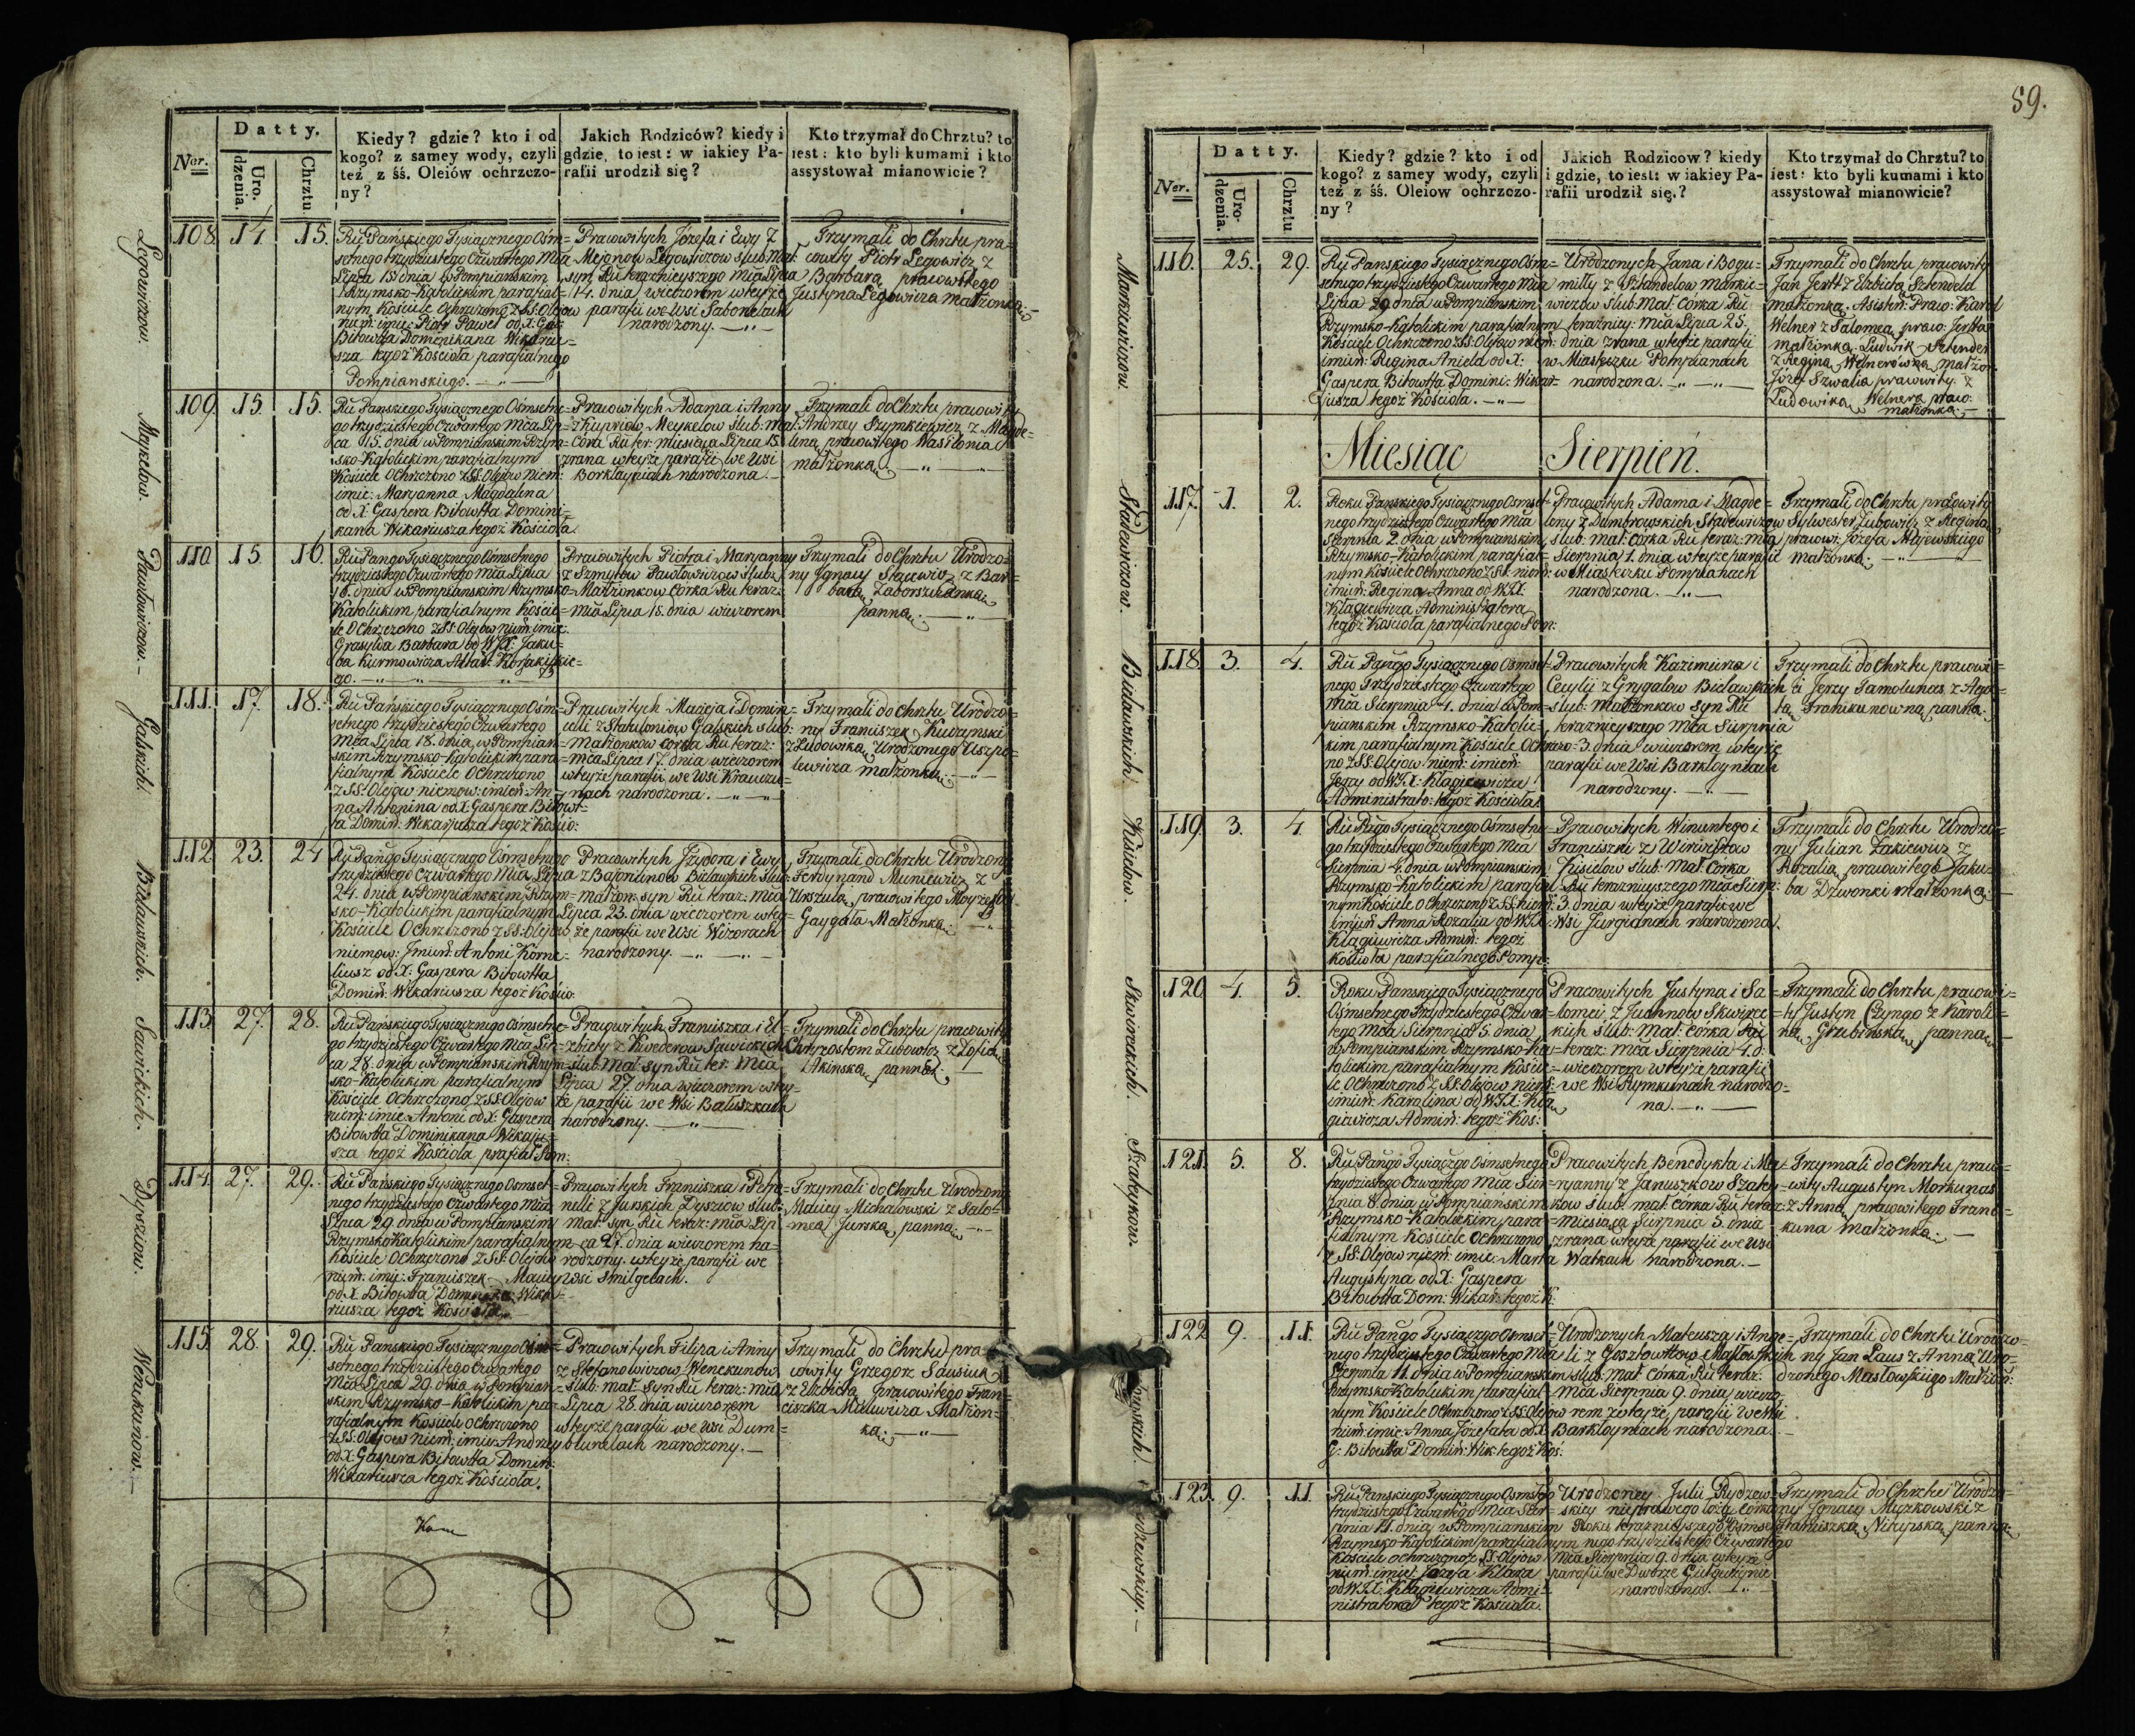 Datty.
Ner.
Uro.
dzenia.
Chrztu
Kiedy? gdzie? kto i od
kogo? z samey wody, czyli
też z śś. Oleiów ochrzczo-
ny?
Jakich Rodziców? kiedy i
gdzie, to iest: w iakiey Pa-
rafii urodził się?
Kto trzymał do Chrztu? to
iest: kto byli kumami i kto
assystował mianowicie?
Legowiczow.
108. 14. 15.
Ru Pańskiego Tysiącznego Ośm=
setnego trzydziestego Czwartego Mca
Lipca 15 dnia w Pompianskim
Rzymsko-Katolickim parafial=
nym Kościele Ochrzczono z SS: Olejow
niem: imie: Piotr Paweł od X: Ga:
Bitowtta Dominikana Wikariu=
sza tegoż Kościoła parafialnego
Pompianskiego.
Pracowitych Józefa i Ewy z
Mejonow Legowiczow slub: Mał:
syn Ru teraznieyszego Mca Lipca
14. dnia wieczorem w teyże
parafii we Wsi Sabonelach
narodzony.
Trzymali do Chrztu pra=
cowity Piotr Legowicz z
Barbarą pracowitego
Justyna Legowicza małżonką.
Maykelow.
109. 15. 15.
Ru Panskiego Tysiącznego Ośmsetne=
go trzydziestego Czwartego Mca Lip=
ca 15. dnia w Pompianskim Rzym=
sko-Katolickim parafialnym
Kościele Ochrzczono z SS: Olejow niem:
imie: Maryanna Magdalena
od X: Gaspera Bitowtta Domini=
kana Wikariusza tegoż Kościoła.
Pracowitych Adama i Anny
z Kupriow Meykelow slub: mał:
Cora Ru ter: miesiąca Lipca 15.
zrana w teyże parafii we Wsi
Borklayniach narodzona.
Trzymali do Chrztu pracowity
Andrzey Szymkiewicz z Magde=
leną pracowitego Wasilonia
małżonką.
Pawłowiczow.
110. 15. 16.
Ru Pango Tysiącznego Ośmsetnego
trzydziestego Czwartego Mca Lipca
16. dnia w Pompianskim Rzymsko=
Katolickim parafialnym Koście=
le Ochrzczono z SS: Olejow niem: imie:
Grasylda Barbara od WJX: Jaku=
ba Kurmowicza Altar:
go.
Pracowitych Piotra i Maryanny
z Szmytow Pawłowiczow slub:
Małżonkow corka Ru teraz:
Mca Lipca 15. dnia wieczorem
Trzymali do Chrztu Urodzo=
ny Jgnacy Stacewicz z Bar=
barą Zaborszczanką
panną.
Galskich.
111. 17. 18.
Ru Pańskiego Tysiącznego Ośm=
setnego trzydziestego Czwartego
Mca Lipca 18. dnia, w Pompian=
skim Rzymsko-Katolickim para=
fialnym Kościele Ochrzczono
z SS: Olejow niemow: imień: An=
na Antonina od X: Gaspera Bitowt=
ta Domin: Wikariusza tegoż Kościo:
Pracowitych Macieja i Domin=
celli z Statuloniow Galskich slub:
Małżonkow corka Ru teraz:
mca Lipca 17. dnia wieczorem
w teyże parafii we Wsi Krawczu=
nach narodzona.
Trzymali do Chrztu Urodzo=
ny Franciszek Kudzynski
z Ludowiką Urodzonego Uszpo=
lewicza małżonką.
Bielawskich.
112. 23. 24.
Ru Pango Tysiącznego Ośmsetnego
trzydziestego Czwartego Mca Lipca
24. dnia w Pompianskim Rzym=
sko-Katolickim parafialnym
Kościele Ochrzczono z SS: Olejow
niemow: Jmień: Antoni Korne=
liusz od X: Gaspera Bitowtta
Domin: Wikariusza tegoż Kościo:
Pracowitych Jzydora i Ewy
z Bajorunow Bielawskich slub:
małżon: syn Ru teraz: Mca
Lipca 23. dnia wieczorem w tey=
że parafii we Wsi Wizorach
narodzony.
Trzymali do Chrztu Urodzony
Ferdynand Muniewicz z
Urszulą pracowitego
Gaygala Małżonką.
Sawickich.
113. 27. 28.
Ru Pańskiego Tysiącznego Ośmsetne=
go trzydziestego Czwartego Mca Lip=
ca 28. dnia w Pompianskim Rzym=
sko-Katolickim parafialnym
Kościele Ochrzczono z SS: Olejow
niem: imie: Antoni od X: Gaspera
Bitowtta Dominikana Wikariu=
sza tegoż Kościoła prafial Pom:
Pracowitych Franciszka i El=
zbiety z Kwederow Sawickich
slub: Mał: syn Ru ter: Mca
Lipca 27. dnia wieczorem w tey=
że parafii we Wsi Bałuszkach
narodzony.
Trzymali do Chrztu pracowity
Chryzostom Zubowicz z Zofią
Akinską panną.
Dyrziow.
114. 27. 29.
Ru Pańskiego Tysiącznego Ośmset=
nego trzydziestego Czwartego Mca
Lipca 29. dnia w Pompianskim
Rzymsko Katolickim parafialnym
Kościele Ochrzczono z SS: Olejow
niem: imie: Franciszek Maciey
od X: Bitowtta Wika=
riusza tegoż Kościoła.
Pracowitych Franciszka i Petro=
nelli z Jurskich slub:
mał: syn Ru teraz: mca Lip=
ca 27. dnia wieczorem na=
rodzony. w teyże parafii we
Wsi Smilgelach.
Trzymali do Chrztu Urodzony
Maciey Michałowski z Salo=
meą Jurską panną.
Wenckunow.
115. 28. 29.
Ru Panskiego Tysiącznego Ośm=
setnego trzydziestego Czwartego
Mca Lipca 29. dnia w Pompian=
skim Rzymsko-Katolickim pa=
rafialnym Kościele Ochrzczono
z SS: Olejow niem: imie: Andrzey
od X: Gaspera Bitowtta Domin:
Wikariusza tegoż Kościoła.
Pracowitych Filipa i Anny
z Stefanowiczow Wenckunow
slub: mał: syn Ru teraz: mca
Lipca 28. dnia wieczorem
w teyże parafii we Wsi Dum=
blunelach narodzony.
Trzymali do Chrztu pra=
cowity Grzegorz Sausiuk
z Elzbietą pracowitego Fran=
ciszka Małżon=
ką.
59.
Datty.
Ner.
Uro-
dzenia.
Chrztu
Kiedy? gdzie? kto i od
kogo? z samey wody, czyli
też z śś. Oleiow ochrzczo-
ny?
Jakich Rodzicow? kiedy
i gdzie, to iest: w iakiey Pa-
rafii urodził się.?
Kto trzymał do Chrztu? to
iest: kto byli kumami i kto
assystował mianowicie?
Markiewiczow.
116. 25. 29.
Ru Panskiego Tysiącznego Ośm=
setnego trzydziestego Czwartego Mca
Lipca 29 dnia w Pompianskim
Rzymsko-Katolickim parafialnym
Kościele Ochrzczono z SS: Olejow niem:
imień: Regina Aniela od X:
Gaspera Bitowtta Domini: Wikar=
jusza tegoż Kościoła.
Urodzonych Jana i Bogu=
milly z Sztandelow Markie=
wiczow slub: Mał: Corka Ru
terazniey: mca Lipca 25.
dnia zrana w teyże parafii
w Miasteczku Pompianach
narodzona.
Trzymali do Chrztu pracowity
Jan z Elzbietą Sztendela
małżonką. Asisten: Praco: Karol
Welner z Salomeą praco:
małżonką. Ludwik Sztendel
z Reginą Welnerowną małżon:
Józef Szwalia pracowity z
Ludowiką Welnera praco:
małżonką.
Miesiąc Sierpień.
Stadewiczow.
117. 1. 2.
Roku Panskiego Tysiącznego Ośmset=
nego trzydziestego Czwartego Mca
Sierpnia 2. dnia w Pompianskim
Rzymsko-Katolickim parafial=
nym Kościele Ochrzczono z SS: niem:
imień: Regina Anna od WJX:
Kłagiewicza Administratora
tegoż Kościoła parafialnego Pom:
Pracowitych Adama i Magde=
leny z Dumbrowskich Stadewiczow
slub: mał: corka Ru teraz: mca
Sierpnia 1. dnia w teyże parafii
w Miasteczku Pompianach
narodzona.
Trzymali do Chrztu pracowity
Sylwester Zubowicz z Reginą
pracowi: Józefa Majewskiego
małżonką.
Bielawskich.
118. 3. 4.
Ru Pango Tysiącznego Ośmset=
nego Trzydziestego Czwartego
Mca Sierpnia 4. dnia w Pom=
pianskim Rzymsko-Katolic=
kim parafialnym Kościele Ochrzczo=
no z SS: Olejow niem: imień:
Jerzy od WJX: Kłagiewicza
Administrato: tegoż Kościoła.
Pracowitych Kazimierza i
Cecylij z Grygalow Bielawskich
slub: Małżonkow syn Ru
teraznieyszego Mca Sierpnia
3. dnia wieczorem w teyże
parafii we Wsi Barkloyniach
narodzony.
Trzymali do Chrztu pracowi=
ti Jerzy Tamolunas z Aga=
tą Franikunowną panną.
Kisielow.
119. 3. 4.
Ru Pango Tysiącznego Ośmsetne=
go trzydziestego Czwartego Mca
Sierpnia 4. dnia w Pompianskim
Rzymsko-Katolickim parafial=
nym Kościele Ochrzczono z SS: niem:
imień: Anna Rozalia od WJX:
Kłagiewicza Admin: tegoż
Kościoła parafialnego Pomp:
Pracowitych Wincentego i
Franciszki z
Kisielow slub: Mał: Corka
Ru teraznieyszego mca Sierp:
3. dnia w teyże parafii we
Wsi Jurgianach narodzona.
Trzymali do Chrztu Urodzo=
ny Julian Zakiewicz z
Rozalią pracowitego Jaku=
ba Dzwonki małżonką.
Skwireckich.
120. 4. 5.
Roku Panskiego Tysiącznego
Ośmsetnego Trzydziestego Czwar=
tego Mca Sierpnia 5. dnia
w Pompianskim Rzymsko-Ka=
tolickim parafialnym Koście=
le Ochrzczono z SS: Olejow niem:
imień: Karolina od WJX: Kła=
giewicza Admin: tegoż Koś:
Pracowitych Justyna i Sa=
lomei z Juchnow Skwirec=
kich slub: Mał: corka
teraz: Mca Sierpnia 4. d:
wieczorem w teyże parafii
we Wsi Rymkunach narodzo=
na.
Trzymali do Chrztu pracowi=
ty Justyn Czyngo z Karoli=
ną Grubinską panną
Szałeykow.
121. 5. 8.
Ru Pango Tysiączgo Ośmsetnego
trzydziestego Czwartego Mca Sier=
pnia 8. dnia w Pompianskim
Rzymsko-Katolickim para=
fialnym Kościele Ochrzczono
z SS: Olejow niem: imie: Marta
Augustyna od X: Gaspera
Bitowtta Dom: Wikar: tegoż K:
Pracowitych Benedykta i Ma=
ryanny z Januszkow Szałey=
kow slub: mał: corka Ru teraz:
miesiąca Sierpnia 5. dnia
zrana w teyże parafii we Wsi
Watkach narodzona.
Trzymali do Chrztu praco=
wity Augustyn Morkunas
z Anną pracowitego
kuna małżonką.
122. 9. 11.
Ru Pango Tysiączgo Ośmset=
nego trzydziestego Czwartego Mca
Sierpnia 11. dnia w Pompianskim
Rzymsko Katolickim parafial=
nym Kościele Ochrzczono z SS: Olejow
niem: imie: Anna Józefata od X:
G: Bitowtta Domin: Wik: tegoż Koś:
Urodzonych Mateusza i Ange=
li z Gosztowttow Masłowskich
slub: mał: corka Ru teraz:
Mca Sierpnia 9. dnia wieczo
rem w teyże parafii we Wsi
Barkloyniach narodzona.
Trzymali do Chrztu Urodzo=
ny Jan Laus z Anną Uro=
dzonego Masłowskiego Małżon:
123. 9. 11.
Ru Panskiego Tysiącznego Ośmstgo
trzydziestego Czwartego Mca Sier=
pnia 11. dnia w Pompianskim
Rzymsko-Katolickim parafialnym
Kościele Ochrzczono z SS: Olejow
niem: imie: Józefa Klara
od WJX: Kłagiewicza Admi=
nistratora tegoż Kościoła.
Urodzoney Julii Rydzew=
skiey nieprawego łoża corka
Roku teraznieyszego Ośmset
nego trzydziestego Czwartego
Mca Sierpnia 9. dnia w teyże
parafii we Dworze
narodzona.
Trzymali do Chrztu Urodzo=
ny Jgnacy Myszkowski z
Franciszką panną